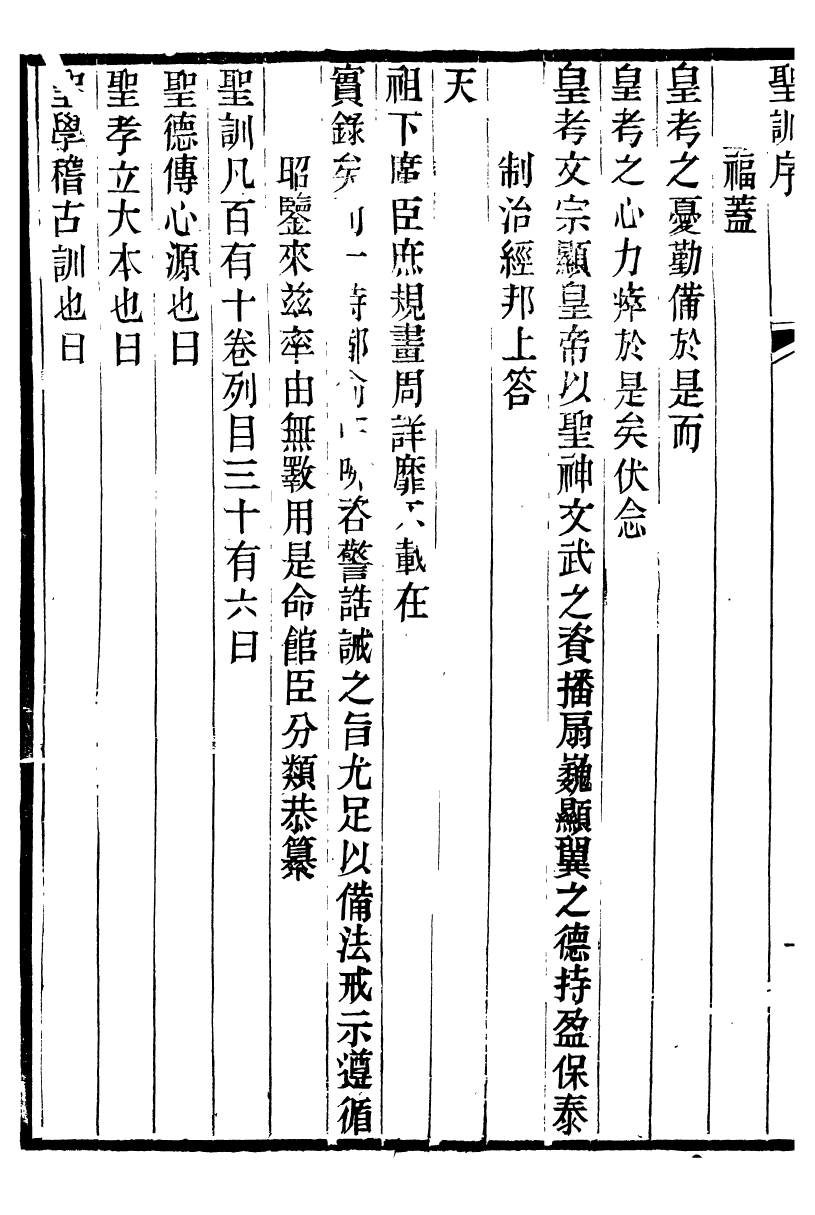 聖訓序
福蓋
皇考之憂勤備於是而
皇考之心力瘁於是矣伏念
皇考文宗顯皇帝以聖神文武之資播扇巍顯翼之德持盈保泰
制治經邦上答
天
祖下席臣庶規畫周詳靡不載在
實錄矣 一時都俞吁咈咨警誥誡之旨尤足以備法戒示遵循
昭鑒來茲率由無斁用是命館臣分類恭纂
聖訓凡百有十卷列目三十有六曰
聖德傳心源也曰
聖孝立大本也曰
聖學稽古訓也曰